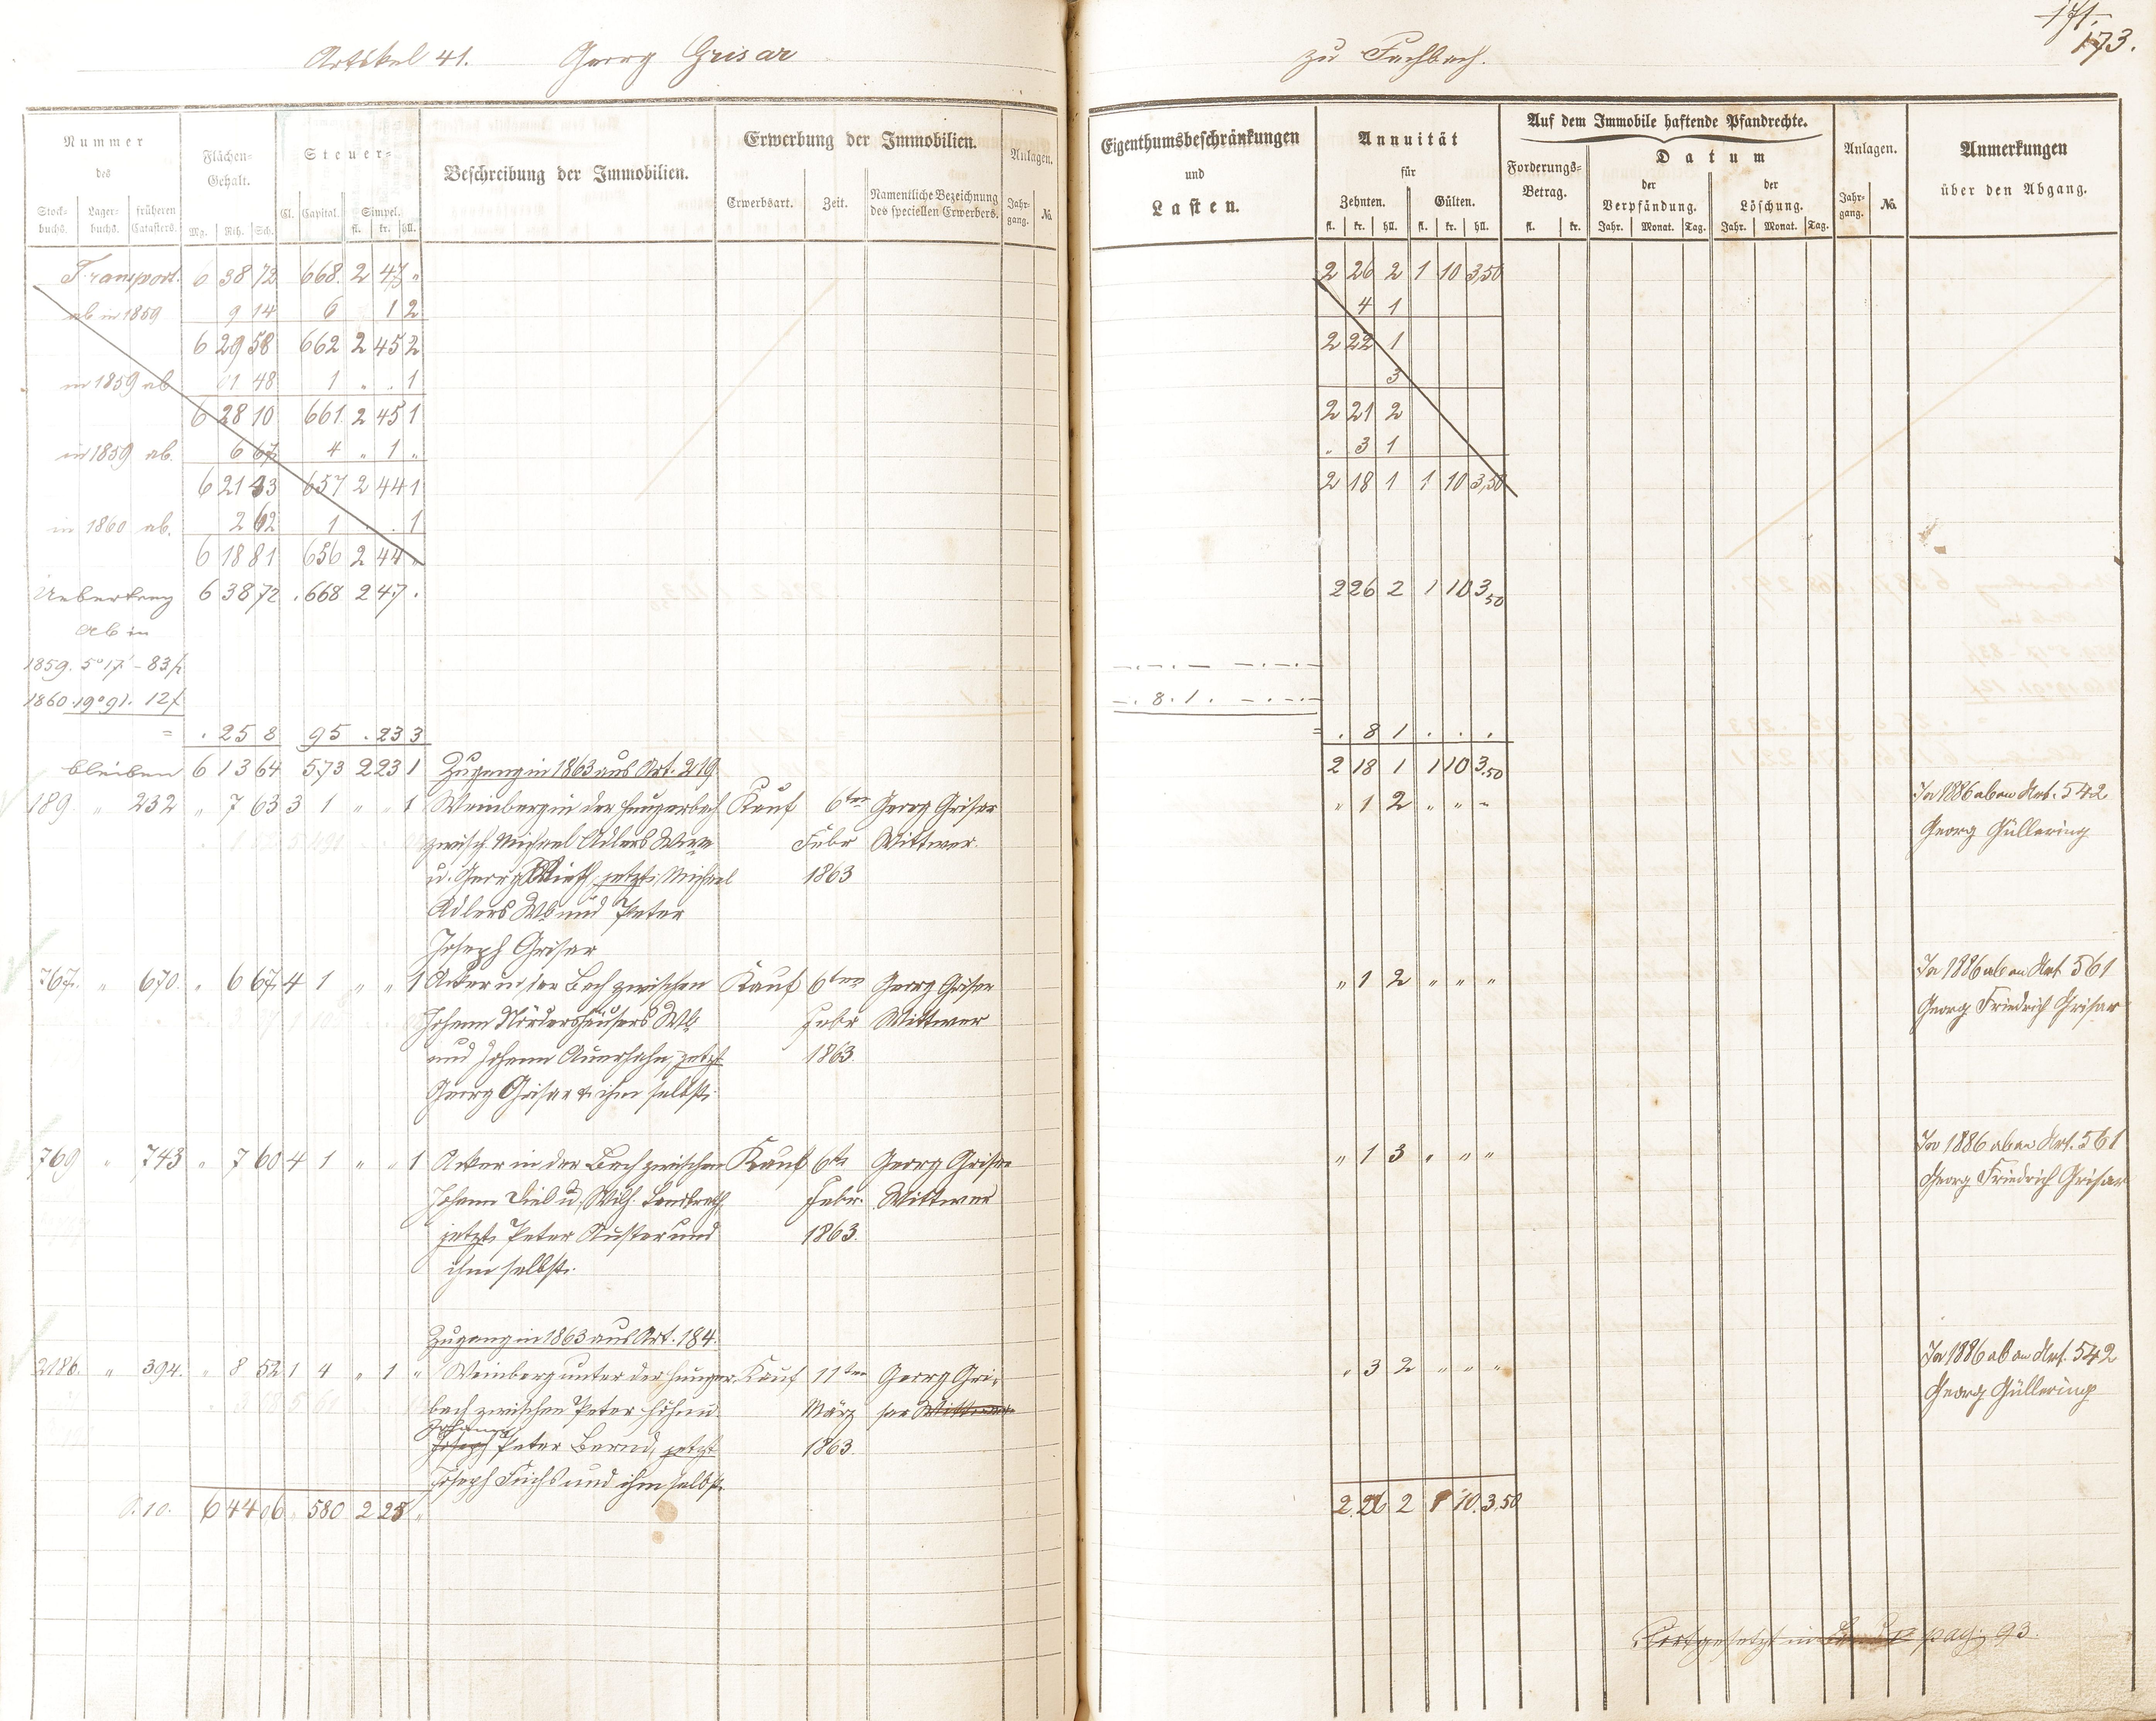 Artikel 41. Georg Grisar
zu Fachbach.
171.
173.
Nummer
des
Stock-
buchs.
Lager-
buchs.
früheren
Catasters.
Flächen-
Gehalt.
Mg. Rth. Sch.
Steuer-
Cl. Capital. Simpel.
fl. kr. hll.
Beschreibung der Immobilien.
Erwerbung der Immobilien.
Erwerbsart. Zeit. Namentliche Bezeichnung
des speciellen Erwerbers.
Anlagen.
Jahr-
gang.
No.
Eigenthumsbeschränkungen
und
Lasten.
Annuität
für
Zehnten. Gülten.
fl. kr. hll. fl. kr. hll.
Auf dem Immobile haftende Pfandrechte.
Forderungs-
Betrag.
fl. kr.
Datum
der
Verpfändung.
Jahr. Monat. Tag.
der
Löschung.
Jahr. Monat. Tag.
Anlagen.
Jahr-
gang.
No.
Anmerkungen
über den Abgang.
Transport. 6 38 72 668. 2 47 " 2 26 2 1 10 3,50
ab in 1859 9 14 6 1 2 4 1
6 29 58 662 2 45 2 2 22 1
in 1859 ab 1 48 1 . . 1 3
6 28 10 661. 2 45 1 2 21 2
in 1859 ab. 6 67 4 " 1 " " 3 1
6 21 43 657 2 44 1 2 18 1 1 10 3,50
in 1860 ab. 2 62 1 . . 1
6 18 81 656 2 44 "
Uebertrag 6 38 72 . 668 2 47 . 2 26 2 1 10 3,50
ab in
1859. 5° 17' - 83 f
1860. 19° 91. 12 f - . 8 . 1 .
= . 25 8 95 . 23 3 = . 8 1 . . .
bleiben 6 13 64 573 2 23 1 Zugang in 1863 aus Art. 219. 2 18 1 1 10 3,50
189. " 232 " 7 63 3 1 " " 1 Weinberg in der Hungerbach Kauf 6ten Georg Grisar " 1 2 " " " In 1886 ab an Art. 542
zwisch. Michael Adlers Wwe Febr Wittwer. Georg Güllering
u. Georg Wirth, jetzt: Michael 1863
Adlers Wb und Peter
Joseph Grisar
767. " 670. " 6 67 4 1 " " 1 Acker in der Bach zwischen Kauf 6ten Georg Grisar " 1 2 " " " In 1886 ab an Art 561
Johann Nördershäusers Wb Febr Wittwer Georg Friedrich Grisar
und Johann Auerhahn, jetzt 1863.
Georg Grisar & ihm selbst.
769 " 743 " 7 60 4 1 " " 1 Acker in der Bach zwischen Kauf 6te Georg Grisar " 1 3 " " " In 1886 ab an Art. 561
Johann Diel u. Wilh. Landrath, Febr. Wittwer Georg Friedrich Grisar
jetzt: Peter Kuster und 1863.
ihm selbst.
Zugang in 1863 aus Art. 184.
2186. " 394. " 8 52 1 4 " 1 " Weinberg unter der Hunger- Kauf 11ten Georg Gri- " 3 2 " " " In 1886 ab an Art. 542
bach zwischen Peter Höhn u. März sar Wittwer Georg Güllering
Johann
Joseph Peter Bernd, jetzt 1863.
Joseph Fuchs und ihm selbst.
P. 10. 6 44 06 . 580 2 25 " 2. 26 2 1 10. 3,50
Fortgesetzt in Band pag. 93.